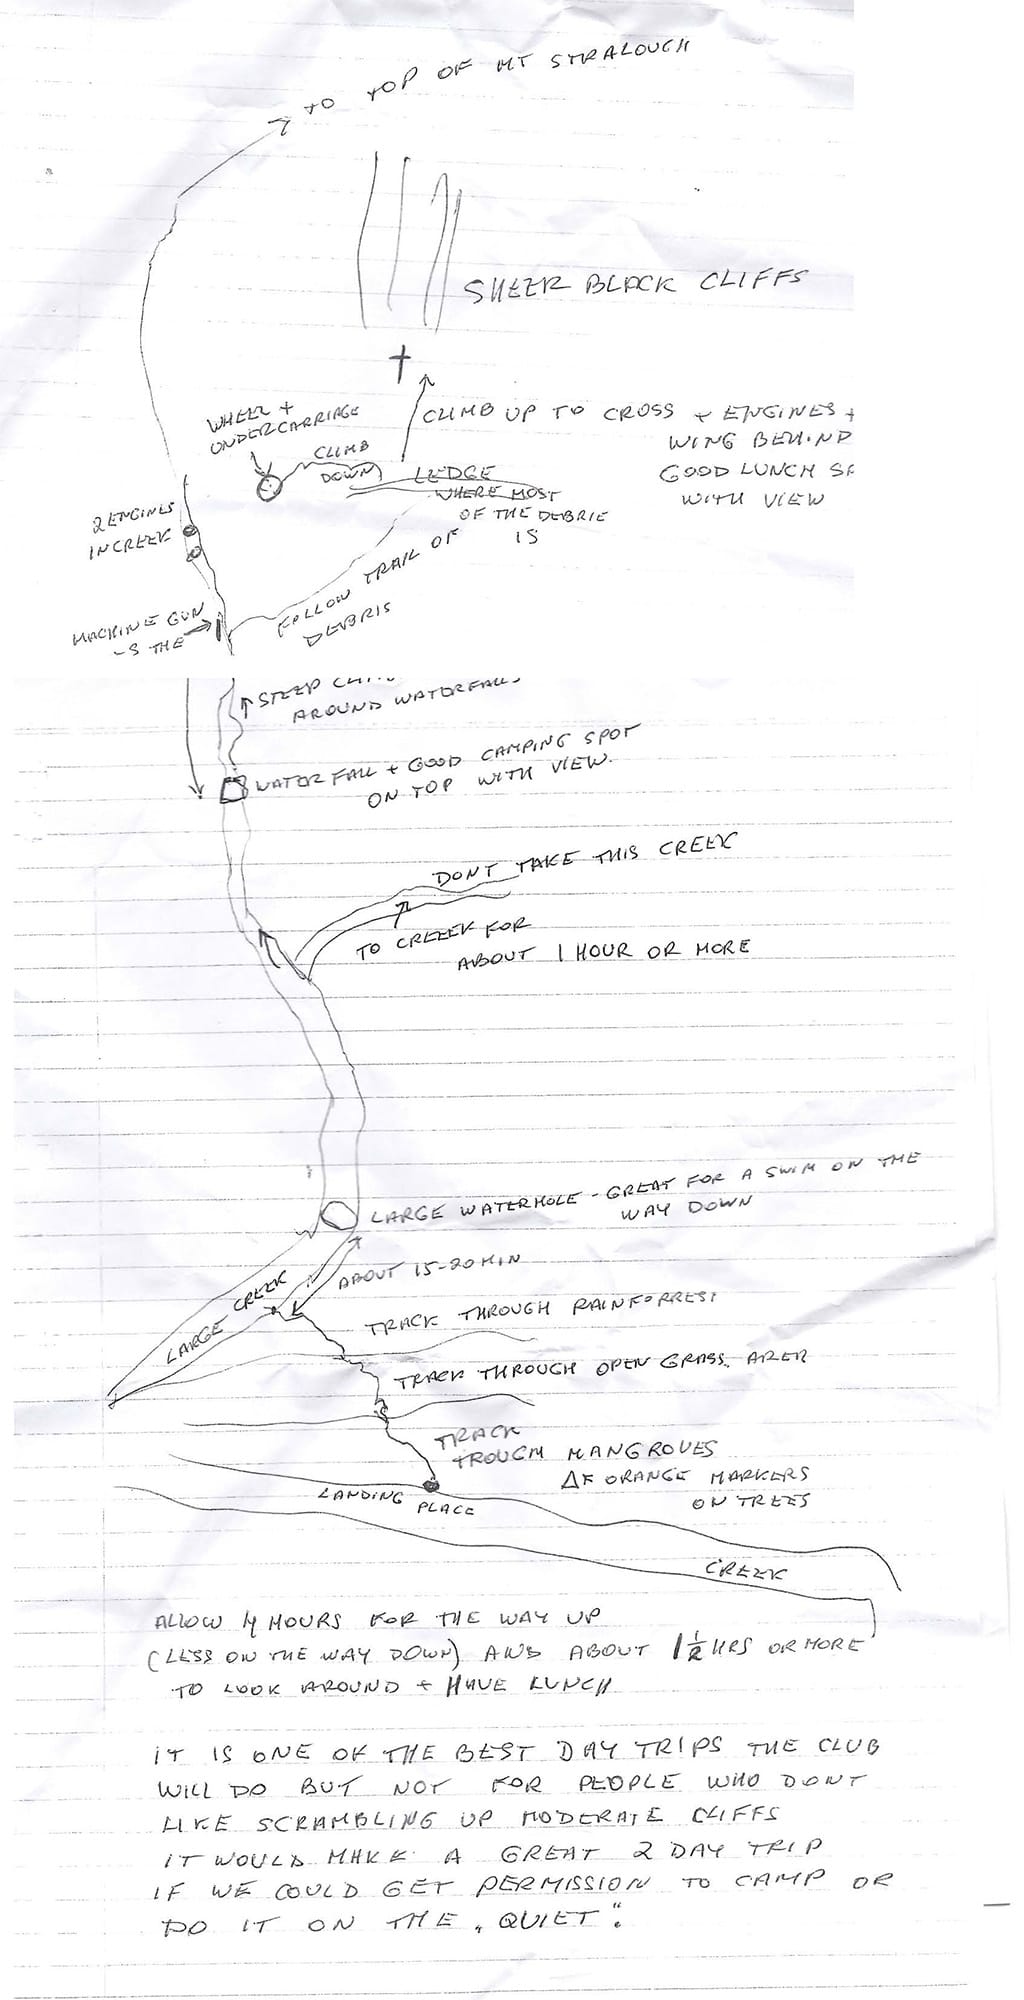 TO TOP OF MT STRALOUCH
SHEER BLACK CLIFFS
WHEEL +
UNDERCARRIAGE
CLIMB
DOWN
CLIMB UP TO CROSS + ENGINES +
WING BEHIND
GOOD LUNCH
WITH VIEW
LEDGE
WHERE MOST
OF THE DEBRIE
IS
2 ENGINES
IN CREEK
FOLLOW TRAIL OF
DEBRIS
MACHINE GUN
IS THE
STEEP
AROUND WATERFALL
WATERFALL + GOOD CAMPING SPOT
ON TOP WITH VIEW.
DONT TAKE THIS CREEK
TO CREEEK FOR
ABOUT 1 HOUR OR MORE
LARGE WATERHOLE - GREAT FOR A SWIM ON THE
WAY DOWN
LARGE CREEK
ABOUT 15-20 MIN
TRACK THROUGH RAINFORREST
TRACK THROUGH OPEN GRASS. ARER
TRACK
TROUGH MANGROVES
ORANGE MARKERS
ON TREES
LANDING PLACE
CREEK
ALLOW 4 HOURS FOR THE WAY UP
(LESS ON THE WAY DOWN) AND ABOUT 1 1/2 HRS OR MORE
TO LOOK AROUND + HAVE LUNCH
IT IS ONE OF THE BEST DAY TRIPS THE CLUB
WILL DO BUT NOT FOR PEOPLE WHO DONT
LIKE SCRAMBLING UP MODERATE CLIFFS
IT WOULD MAKE A GREAT 2 DAY TRIP
IF WE COULD GET PERMISSION TO CAMP OR
DO IT ON THE „QUIET".